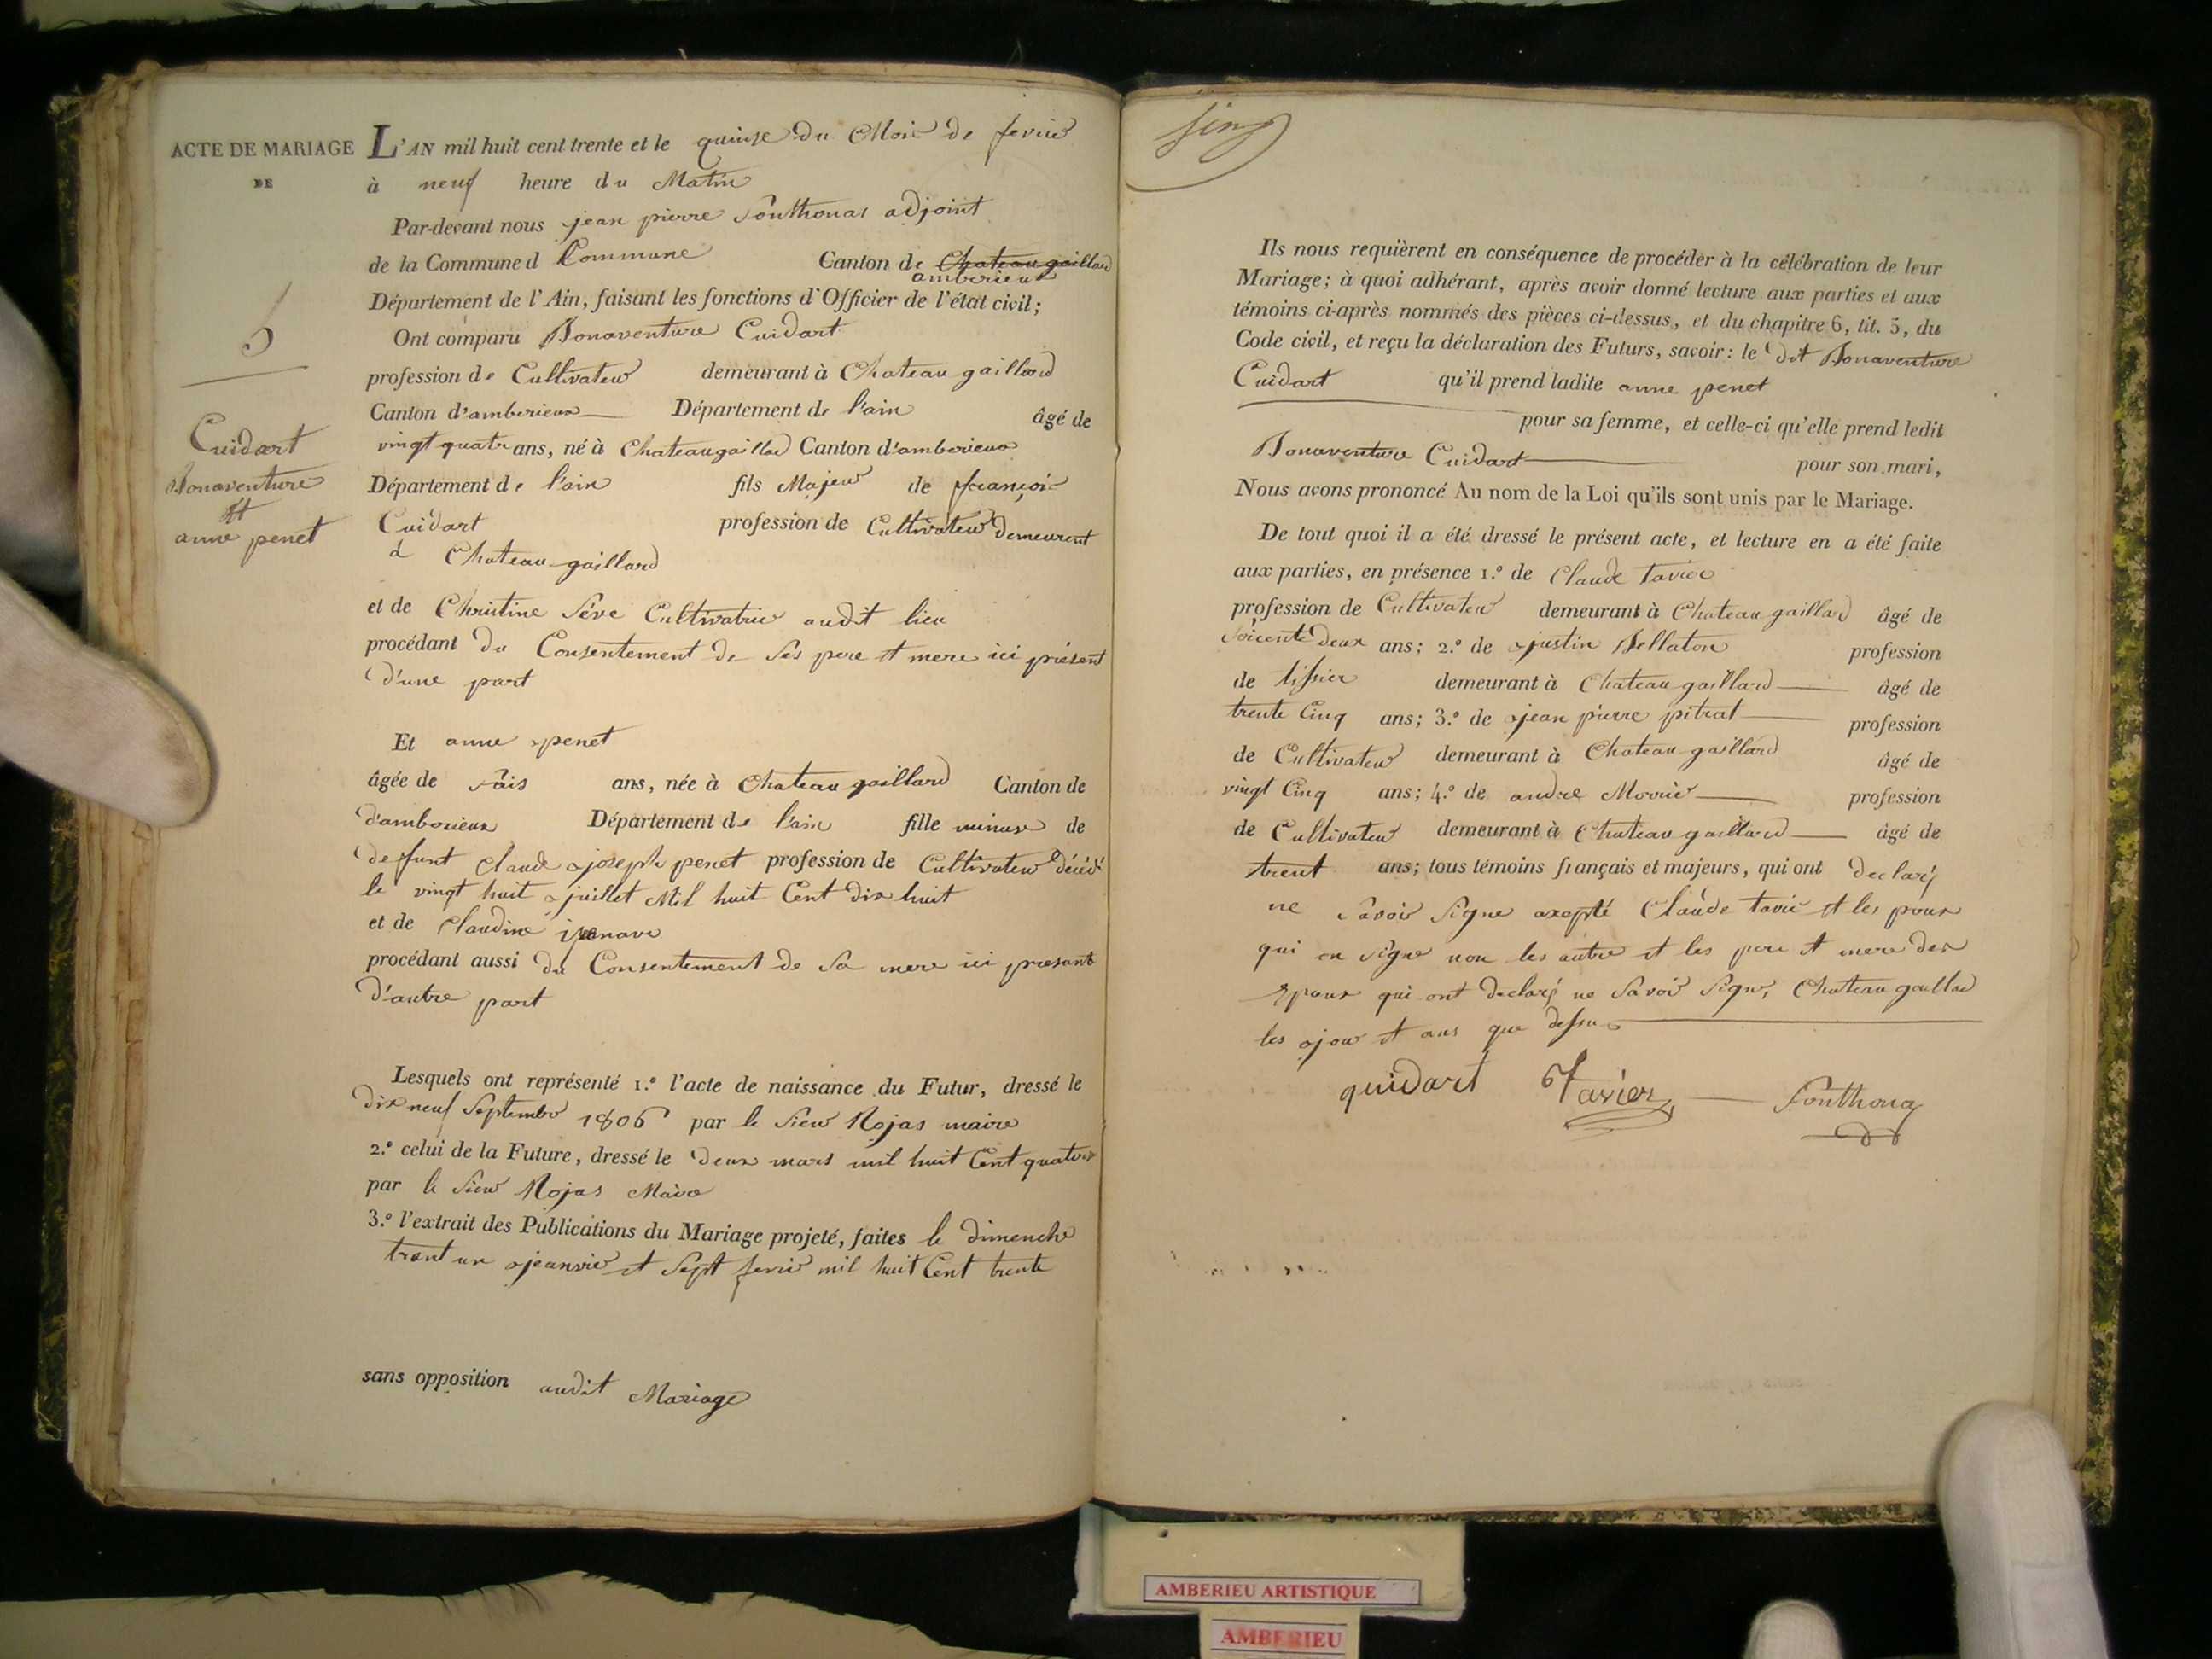 ACTE DE MARIAGE
DE
5
Cuidart
Bonaventure
et
anne penet
L'AN mil huit cent trente et le quinse du Mois de fevrie
à neuf heure du Matin
Par-devant nous jean pierre Fonthonas adjoint
de la Commune d Commune Canton de Chateaugaillard
amberieux
Département de l'Ain, faisant les fonctions d'Officier de l'état civil;
Ont comparu Bonaventure Cuidart
profession de Cultivateur demeurant à Chateau gaillard
Canton d'amberieux Département de l'ain âgé de
vingt quatr ans, né à Chateaugaillad Canton d'amberieux
Département de l'ain fils Majeur de françois
Cuidart profession de Cultivateur demeurent
à Chateau-gaillard
et de Christine Séve Cultivatrice audit lieu
procédant du Consentement de ses pere et mere ici présent
d'une part
Et anne penet
âgée de ans, née à Chateau gaillard Canton de
d'amberieux Département de l'ain fille minure de
deffunt Claude joseph penet profession de Cultivateur décédé
le vingt huit juillet Mil huit Cent dix huit
et de Claudine
procédant aussi du Consentement de sa mere ici presant
d'autre part
Lesquels ont représenté 1.° l'acte de naissance du Futur, dressé le
dix neuf Septembre 1806 par le Sieur Rojas maire
2.° celui de la Future, dressé le deux mars mil huit Cent quatorz
par le Sieur Rojas Maire
3.° l'extrait des Publications du Mariage projeté, faites le dimenche
trent un jeanvier et Sept fevrie mil huit Cent trente
sans opposition audit Mariage
Ils nous requièrent en conséquence de procéder à la célébration de leur
Mariage; à quoi adhérant, après avoir donné lecture aux parties et aux
témoins ci-après nommés des pièces ci-dessus, et du chapitre 6, tit. 5, du
Code civil, et reçu la déclaration des Futurs, savoir: le dit Bonaventure
Cuidart qu'il prend ladite anne penet
pour sa femme, et celle-ci qu'elle prend ledit
Bonaventure Cuidart pour son mari,
Nous avons prononcé Au nom de la Loi qu'ils sont unis par le Mariage.
De tout quoi il a été dressé le présent acte, et lecture en a été faite
aux parties, en présence 1.° de Claude tavier
profession de Cultivateur demeurant à Chateau gaillard âgé de
soicente deux ans; 2.° de justin Bellaton profession
de tissier demeurant à Chateau gaillard âgé de
trente Cinq ans; 3.° de jean pierre pitrat profession
de Cultivateur demeurant à Chateau gaillard âgé de
vingt Cinq ans; 4.° de andre profession
de Cultivateur demeurant à Chateau gaillard âgé de
trent ans; tous témoins français et majeurs, qui ont declaré
ne savoir Signe axepté Claude tavie et les poux
qui on signe non les autre et les pere et mere des
Epoux qui ont declaré ne Savoir Signe, Chateau gaillad
les jour et ans que dessus
quidart Tavier Fonthonas
AMBERIEU ARTISTIQUE
AMBERIEU